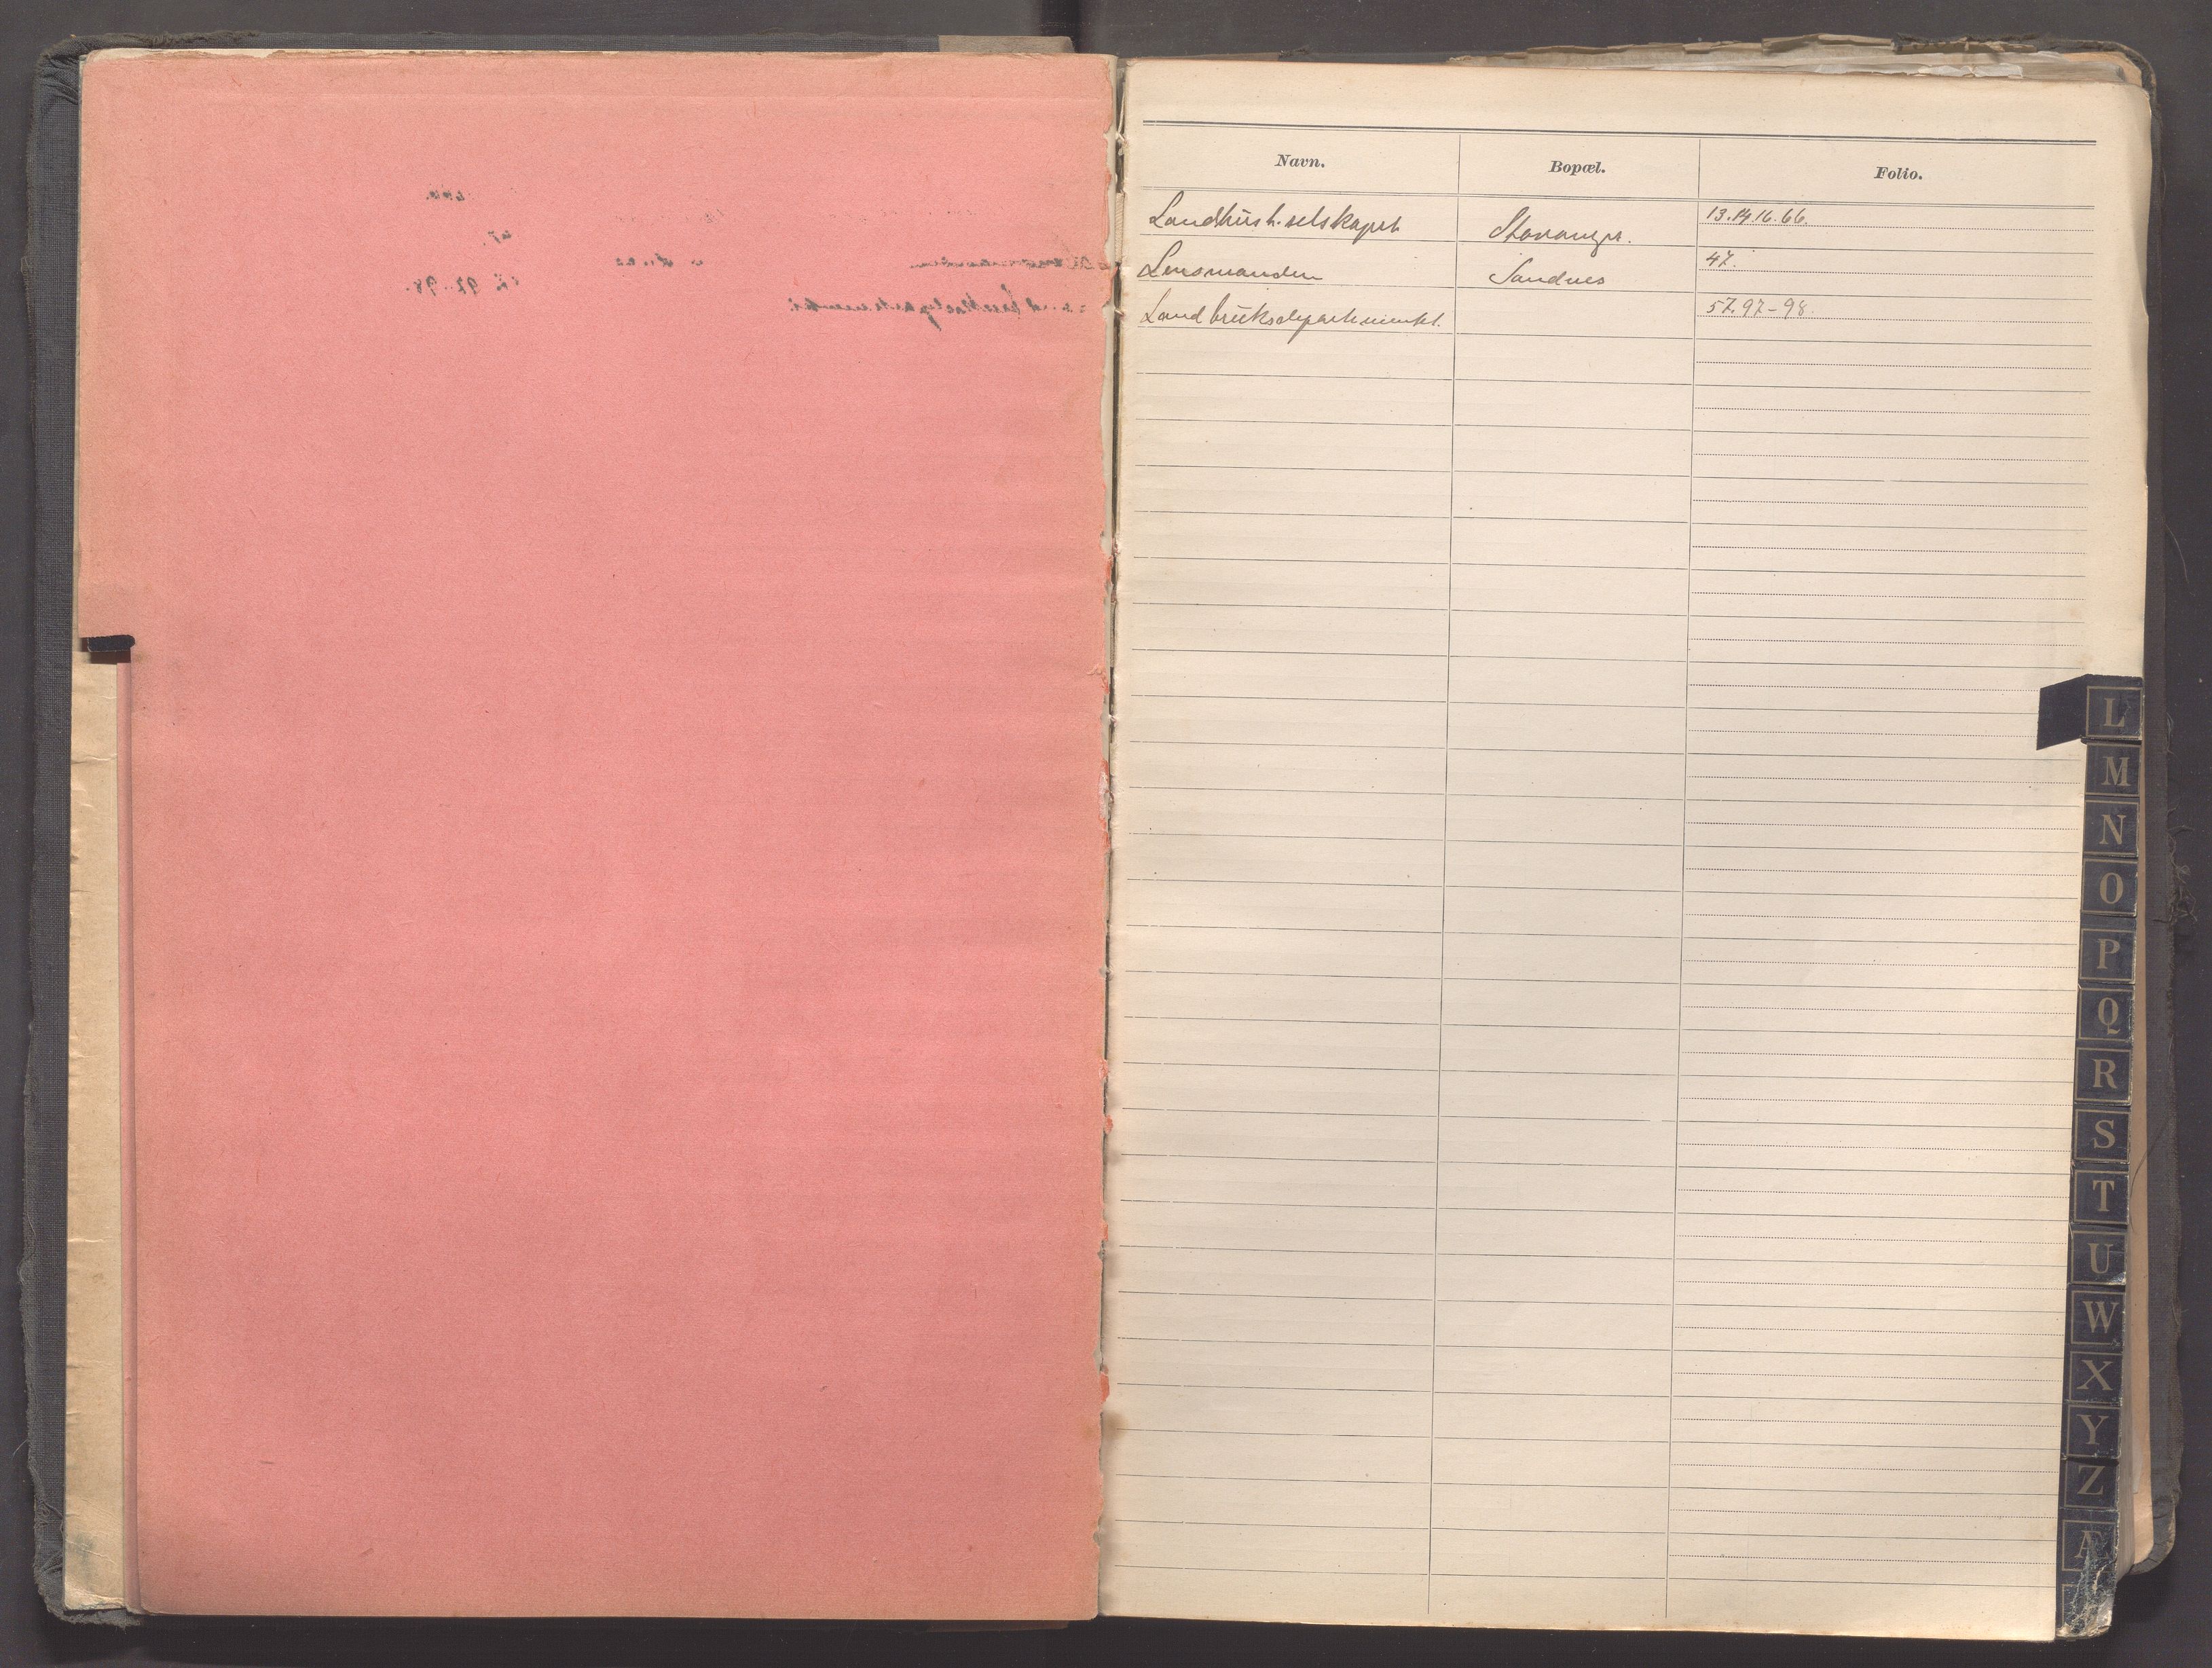 Navn. Bopæl. Folio.
Landhush. selskapet Stavanger. 13.14.16.66.
Lensmanden Sandnes 47.
Landbruksdepartementet. 57.97-98.
L
M
N
O
P
Q
R
S
T
U
W
X
Y
Z